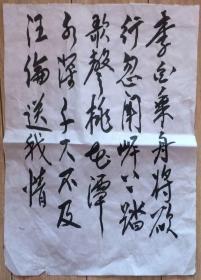 李白乘舟将欲
行忽闻岸上踏
歌声桃花潭
水深千尺不及
汪伦送我情